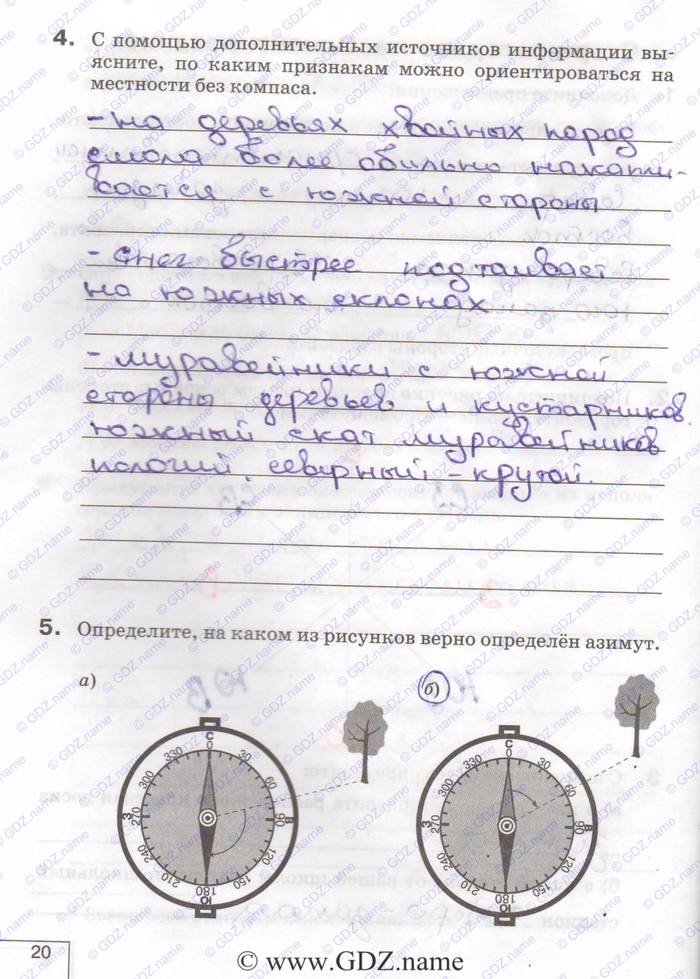 4. С помощью дополнительных источников информации вы-
ясните, по каким признакам можно ориентироваться на
местности без компаса.
- на деревьях хвойных пород
смола более обильно накапли-
вается с южной стороны
- снег быстрее подтаивает
на южных склонах
- муравейники с южной
стороны деревьев и кустарников.
южный скат муравейников
пологий, северный - крутой.
5. Определите, на каком из рисунков верно определён азимут.
а)
б)
С
0
30
60
90
В
120
150
180
Ю
210
240
З
300
330
С
0
30
60
90
В
120
150
180
Ю
210
240
З
300
330
20
© www.GDZ.name